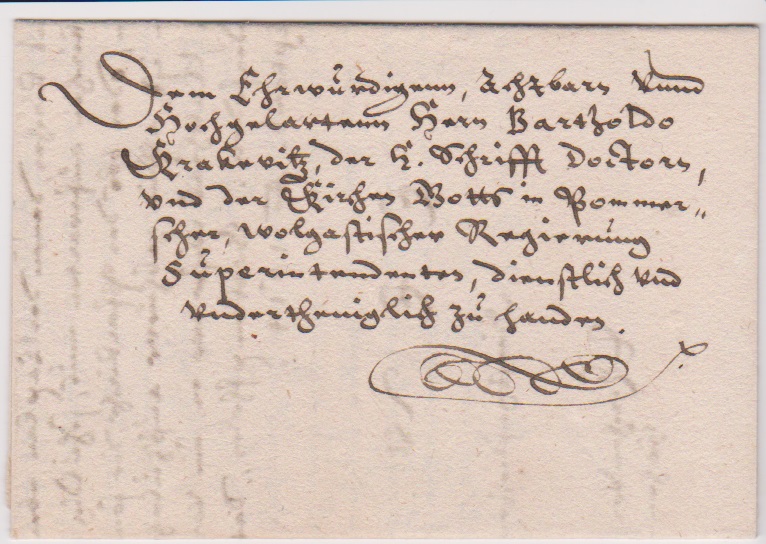 Dem Ehrwürdigenn, Achtbarn Vnnd
Hochgelartenn Hern Bartholdo
Krakevitz, der H. Schrifft Doctorn,
vnd der Kirchen Gotts in Pommer„
scher, Wolgastischer Regierung
Superintendenten, dienstlich vnd
vndertheniglich zu handen.